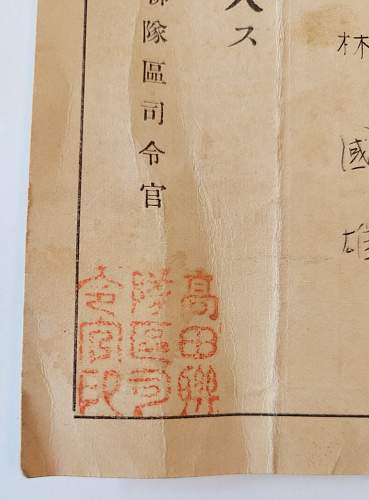 林國雄
ス
隊區司令官
高田聯
隊區司
令官印